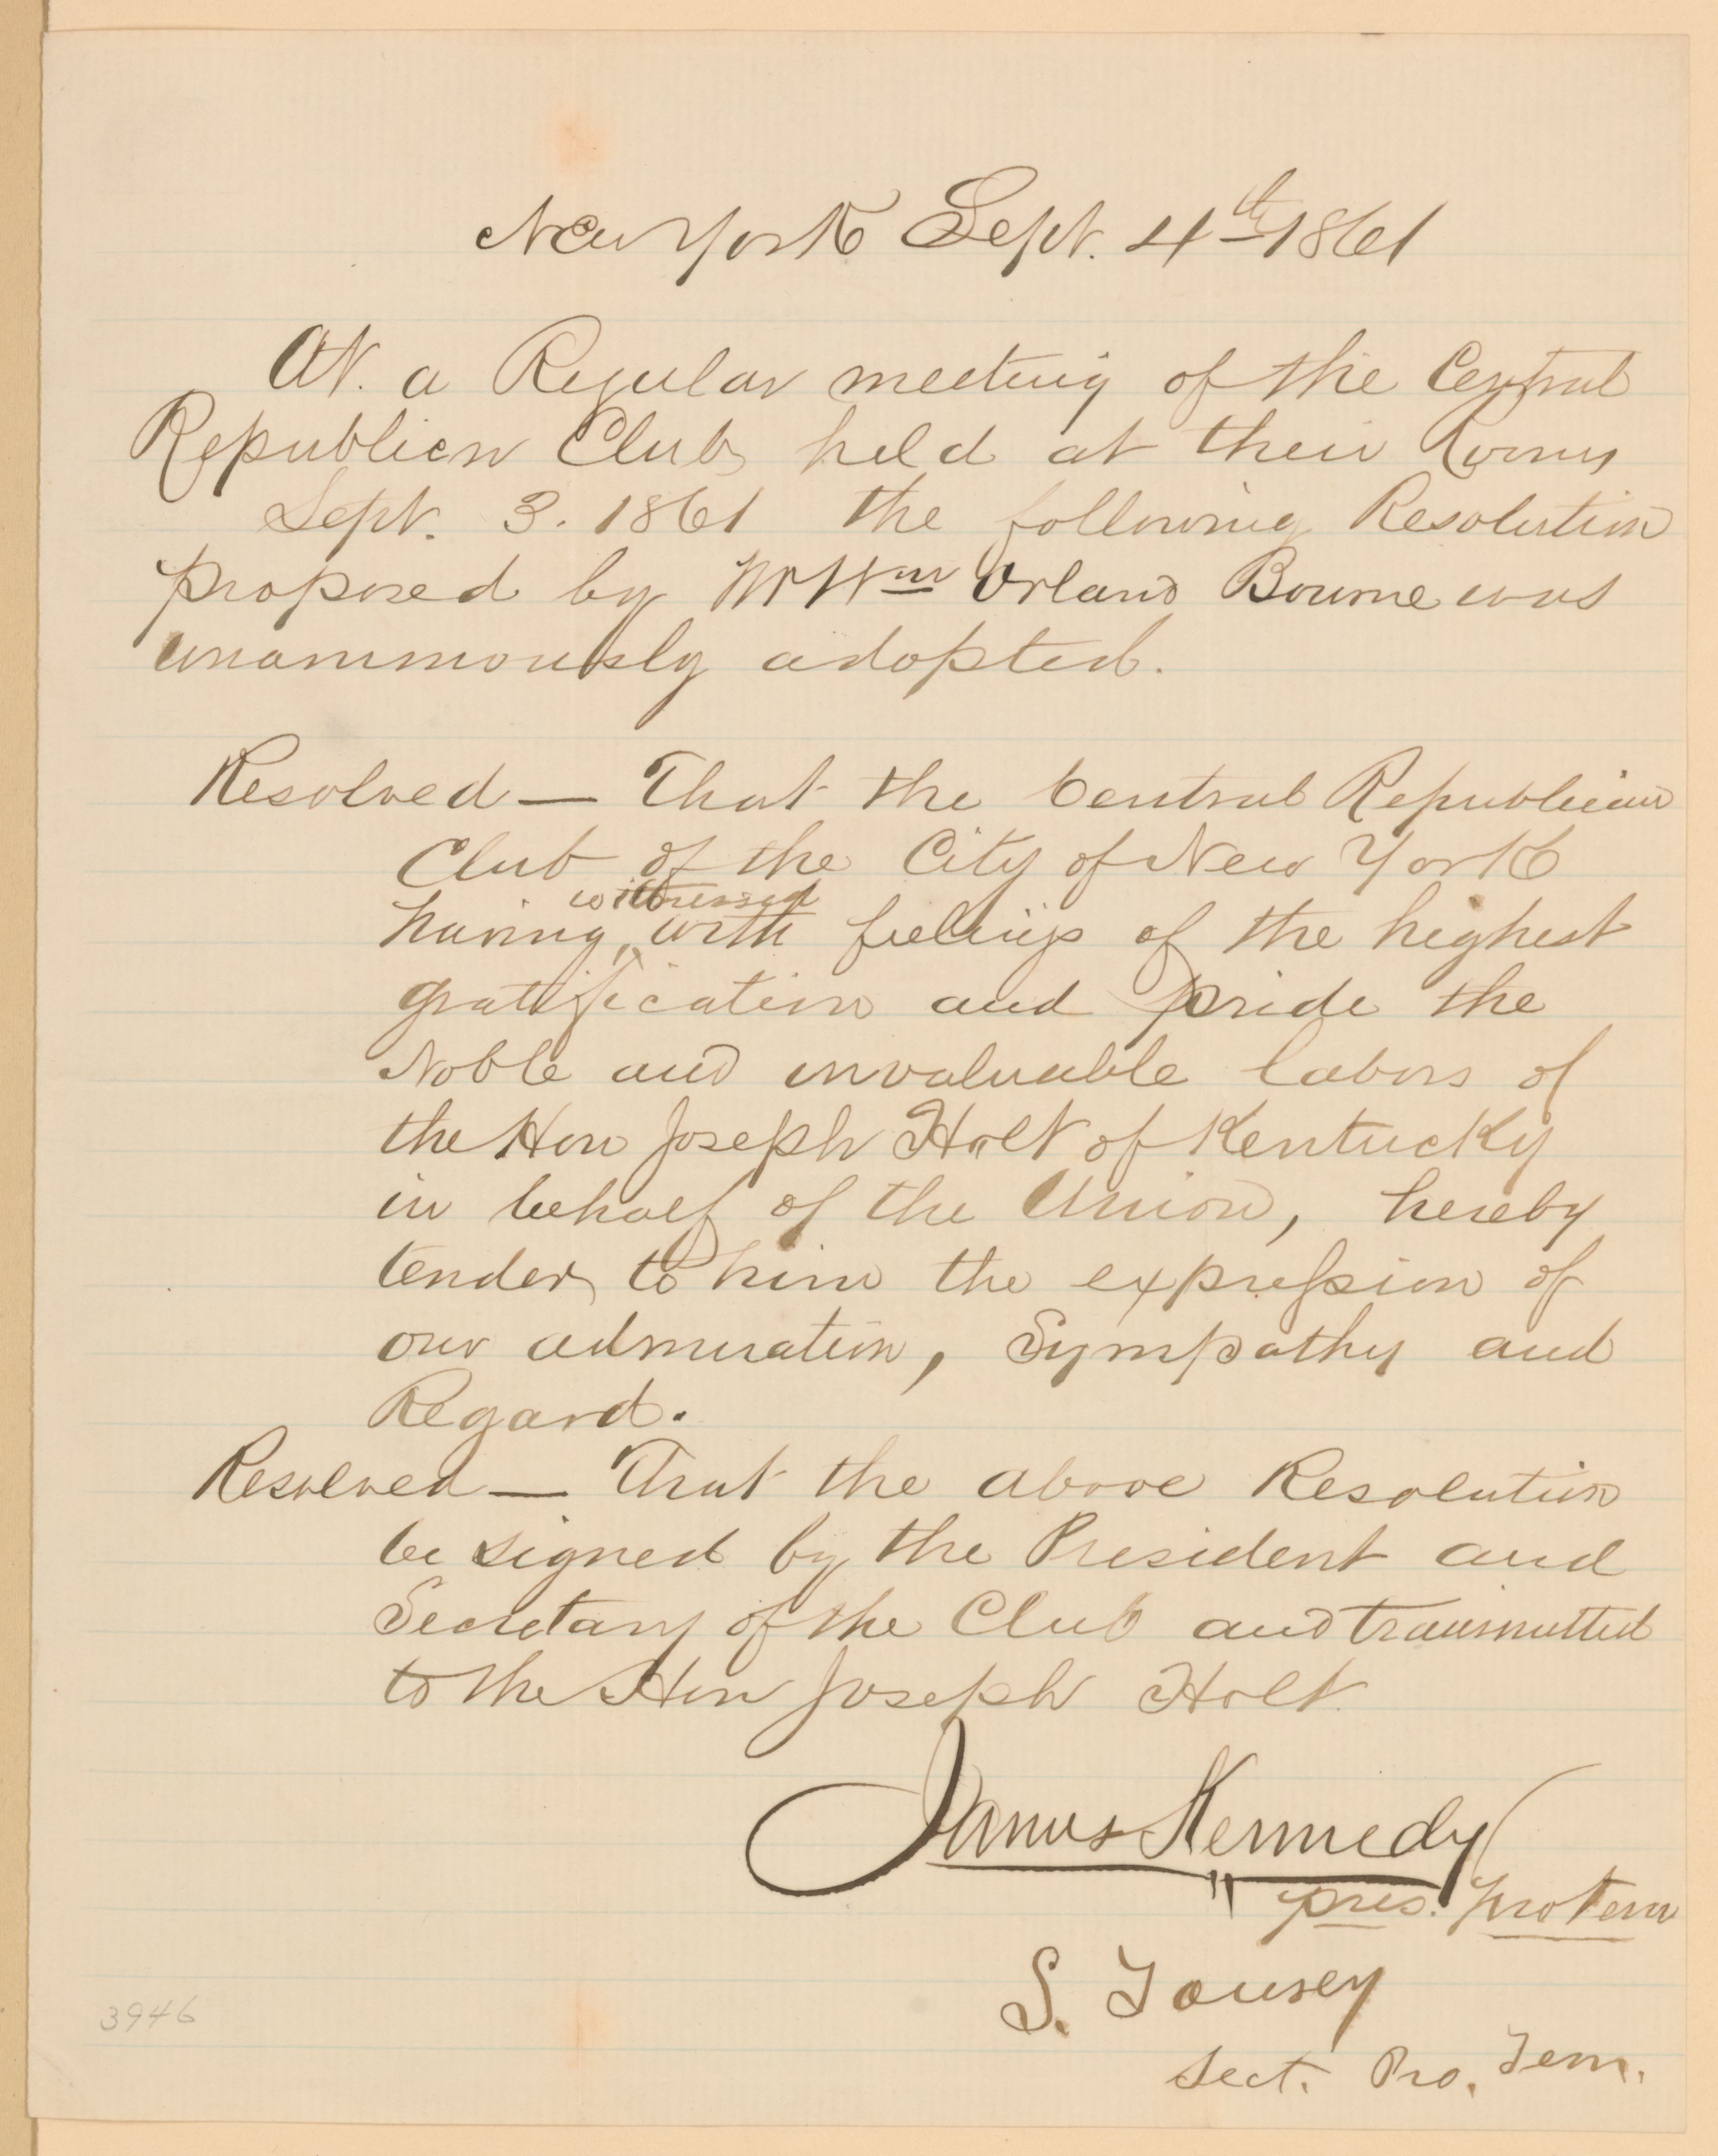 New York Sept. 4th 1861
At. a Regular meeting of the Central
Republican Club held at their Rooms
Sept. 3. 1861 the following Resolution
proposed by Mr Wm Orland Bourne was
unanimously adopted.
Resolved — That the Central Republican
Club of the City of New York
witnessed
having ‸ with feelings of the highest
gratification and pride the
Noble and invaluable labors of
the Hon Joseph Holt of Kentucky
in behalf of the Union, hereby
tender to him the expression of
our admiration, Sympathy and
Regard.
Resolved — That the above Resolution
be signed by the President and
Secretary of the Club and transmitted
to the Hon Joseph Holt.
James Kennedy
pres. protem
S. Tousey
Sect. Pro. Tem.
3946